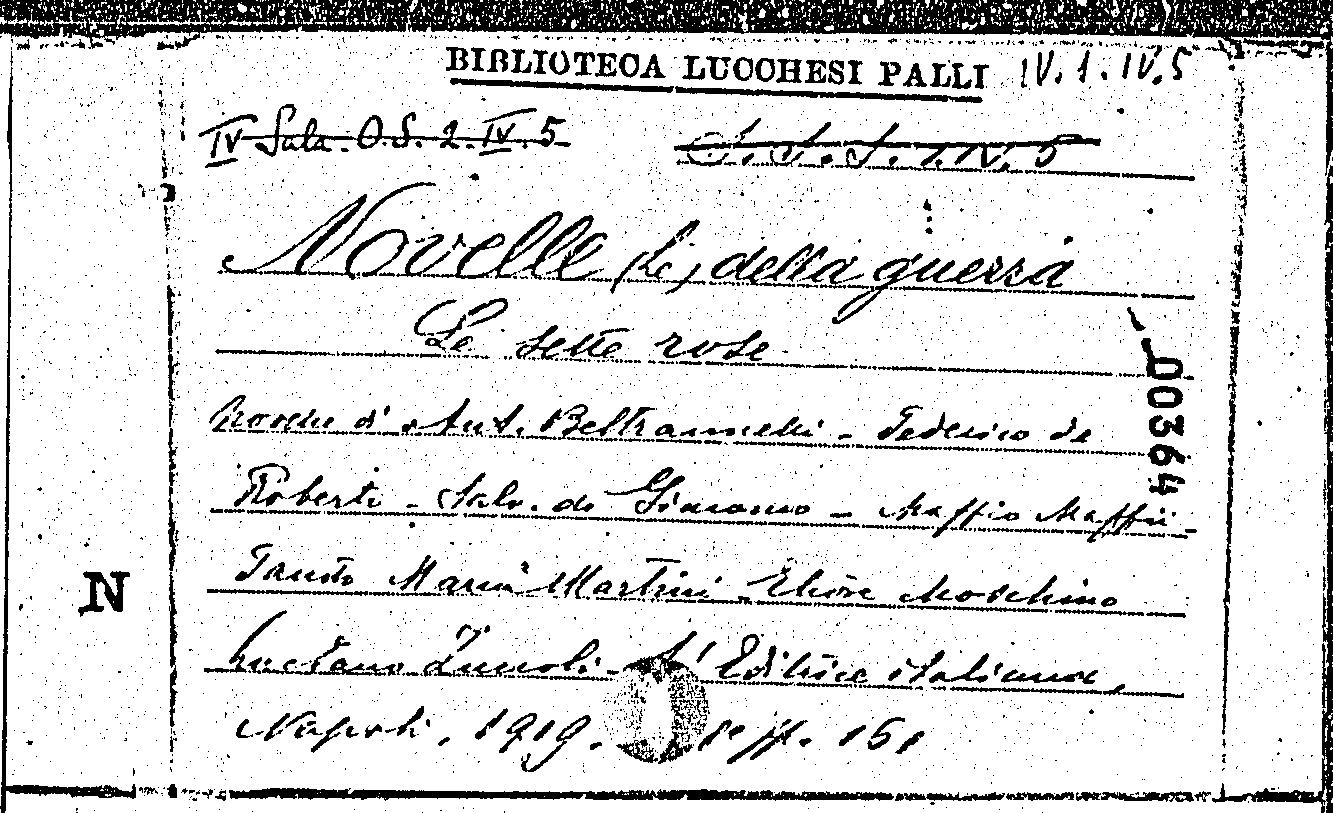 BIBLIOTECA LUCCHESI PALLI IV.1.IV.5
IV Sala. O.S. 2. IV. 5
S. S. S. 1. IV. 5
Novelle (Le) della guerra
Le sette rose
Novelle d' Ant. Beltramelli - Federico de
Roberto - Salv. di Giacomo - Maffio Maffii -
Fausto Maria Martini - Ettore Moschino
Luciano Zuccoli - L' Editrice italiana,
Napoli, 1919. pp. 151
00364
N